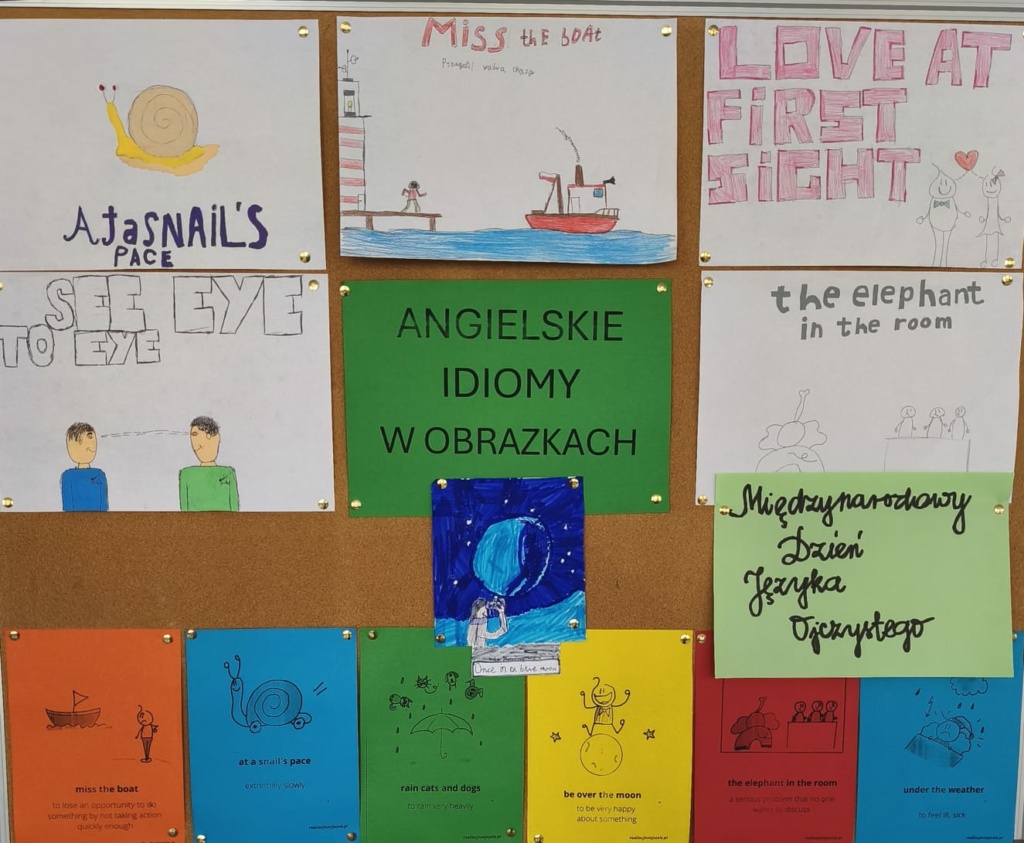 At a SNAIL'S
PACE
Miss the boat
LOVE AT
FIRST
SIGHT
SEE EYE
TO EYE
ANGIELSKIE
IDIOMY
W OBRAZKACH
the elephant
in the room
Międzynarodowy
Dzień
Języka
Ojczystego
Once in a blue moon
miss the boat
to lose an opportunity to do
something by not taking action
quickly enough
at a snail's pace
extremely slowly
rain cats and dogs
to rain very heavily
be over the moon
to be very happy
about something
the elephant in the room
a serious problem that no one
wants to discuss
under the weather
to feel ill, sick